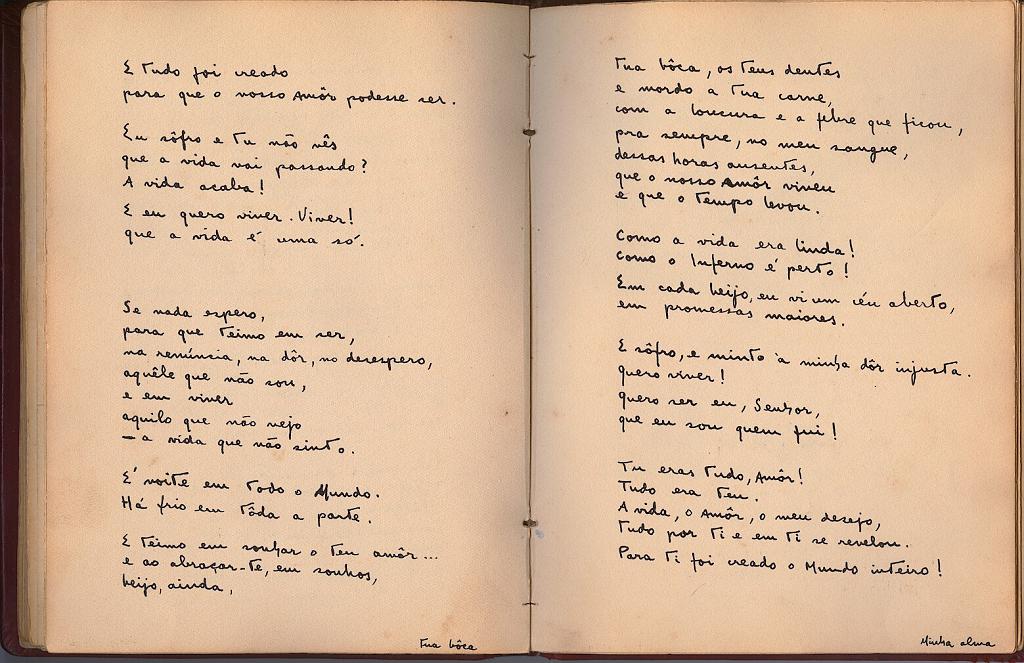 E tudo foi creado
para que o nosso Amôr podesse ser.
Eu sôfro e tu não vês
que a vida vai passando?
A vida acaba!
E eu quero viver. Viver!
que a vida é uma só.
Se nada espero,
para que teimo em ser,
na renúncia, na dôr, no desespero,
aquêle que não sou,
e em viver
aquilo que não vejo
— a vida que não sinto.
É noite em todo o Mundo.
Há frio em tôda a parte.
E teimo em sonhar o teu amôr...
e ao abraçar-te, em sonhos,
beijo, ainda,
tua bôca
tua bôca, os teus dentes
e mordo a tua carne,
com a loucura e a febre que ficou,
pra sempre, no meu sangue,
dessas horas ausentes,
que o nosso Amôr viveu
e que o tempo levou.
Como a vida era linda!
Como o Inferno é perto!
Em cada beijo, eu vi um céu aberto,
em promessas maiores.
E sôfro, e minto à minha dôr injusta.
quero viver!
quero ser eu, Senhor,
que eu sou quem fui!
Tu eras tudo, Amôr!
Tudo era teu.
A vida, o Amôr, o meu desejo,
tudo por ti e em ti se revelou.
Para ti foi creado o Mundo inteiro!
Minha alma